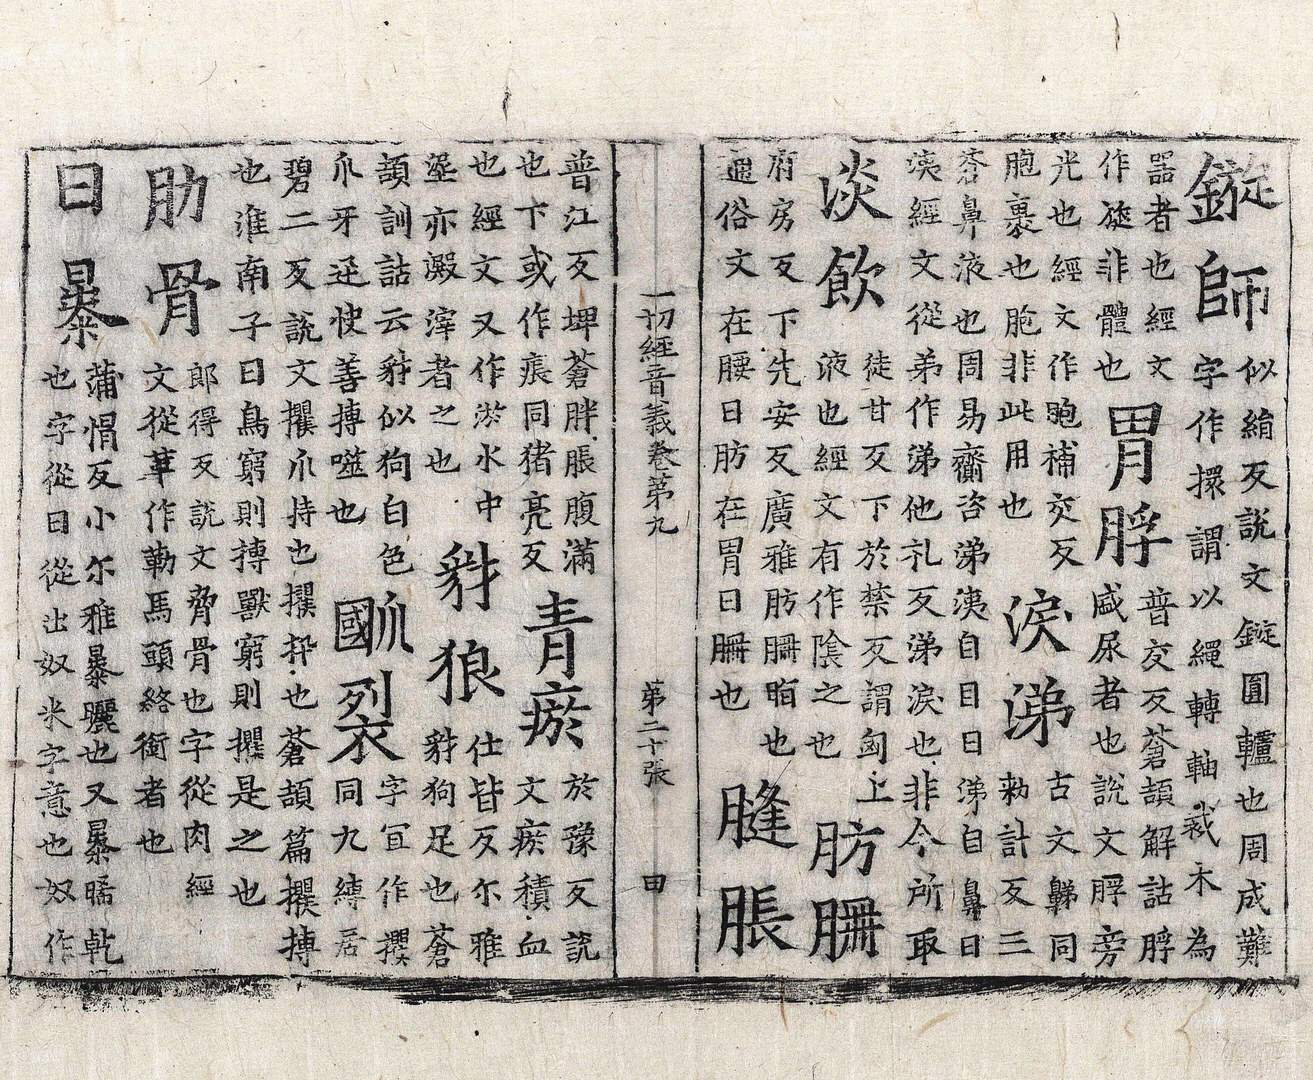 鏇師
似絹反說文鏇圓轤也周成難
字作擐謂以繩轉軸裁木為
器者也經文
作旋非體也
胃脬
普交反蒼頡解詁脬
盛尿者也說文脬旁
光也經文作胞補交反
胞裹也胞非此用也
淚涕
古文䶏同
勑計反三
蒼鼻液也周易齎咨涕洟自目曰涕自鼻曰
洟經文從弟作涕他礼反涕淚也非今所取
淡飲
徒甘反下於禁反謂匈上
液也經文有作陰之也
肪𦙱
府房反下先安反廣雅肪𦙱脂也
通俗文在腰曰肪在胃曰𦙱也
膖脹
一切經音義卷第九 第二十張 田
普江反埤蒼胖脹腹滿
也下或作痮同猪亮反
青瘀
於豫反說
文瘀積血
也經文又作淤水中
埿亦澱滓者之也
豺狼
仕皆反尔雅
豺狗足也蒼
頡訓詁云豺似狗白色
爪牙迅快善搏噬也
裂
字冝作攫
同九縛居
碧二反說文攫爪持也攫扟也蒼頡篇攫搏
也淮南子曰鳥窮則搏獸窮則攫是之也
肋骨
郎得反說文脅骨也字從肉經
文從革作勒馬頭絡銜者也
日暴
蒲反小尔雅暴曬也又暴晞乾
也字從日從出奴米字意也奴作